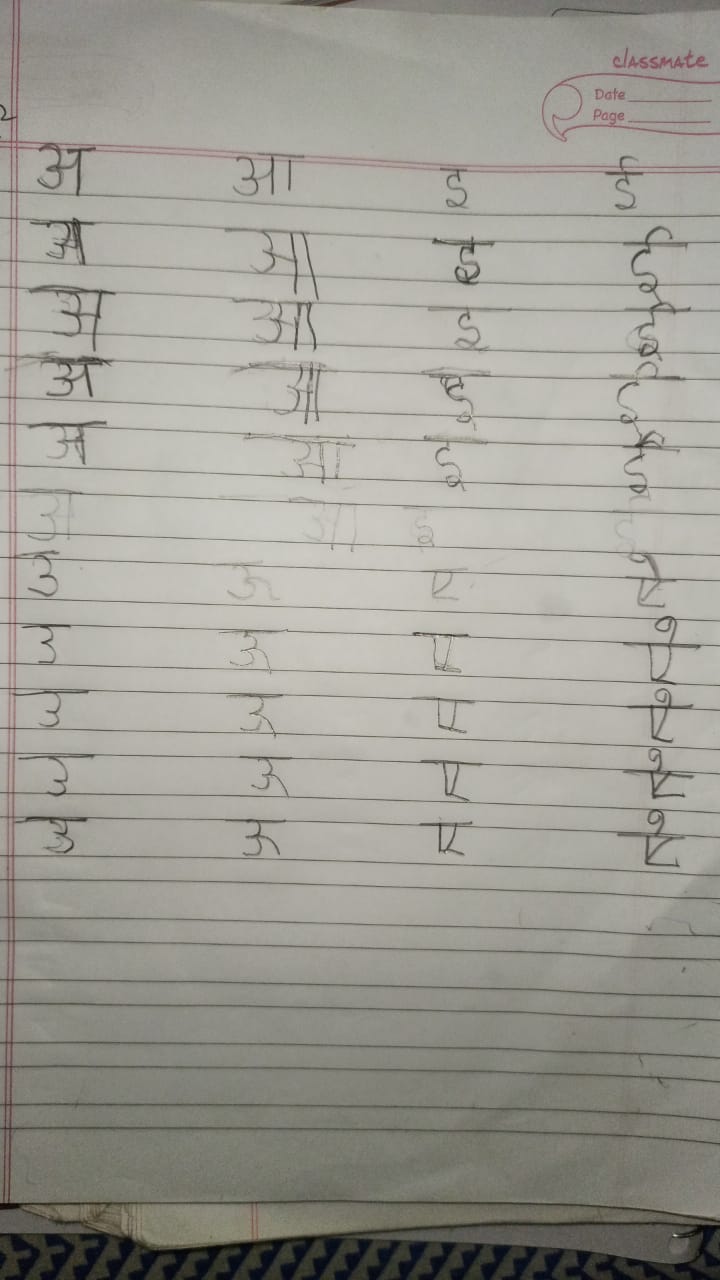 classmate
Date
Page
अ आ इ ई
अ आ इ ई
अ आ इ ई
अ आ इ ई
अ आ इ ई
अ आ इ ई
उ ऊ ए ऐ
उ ऊ ए ऐ
उ ऊ ए ऐ
उ ऊ ए ऐ
उ ऊ ए ऐ